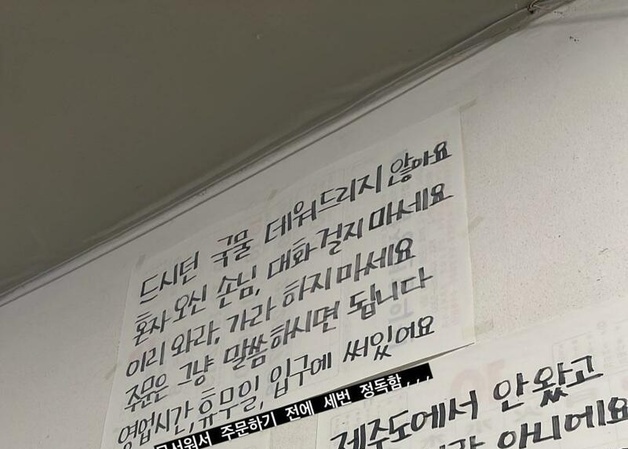 드시던 국물 데워드리지 않아요
혼자 오신 손님, 대화 걸지 마세요
이리 와라, 가라 하지마세요
주문은 그냥 말씀하시면 됩니다
영업시간, 휴무일, 입구에 써있어요
주문하기 전에 세번 정독함,,,
제주도에서 안 왔고
아니에요